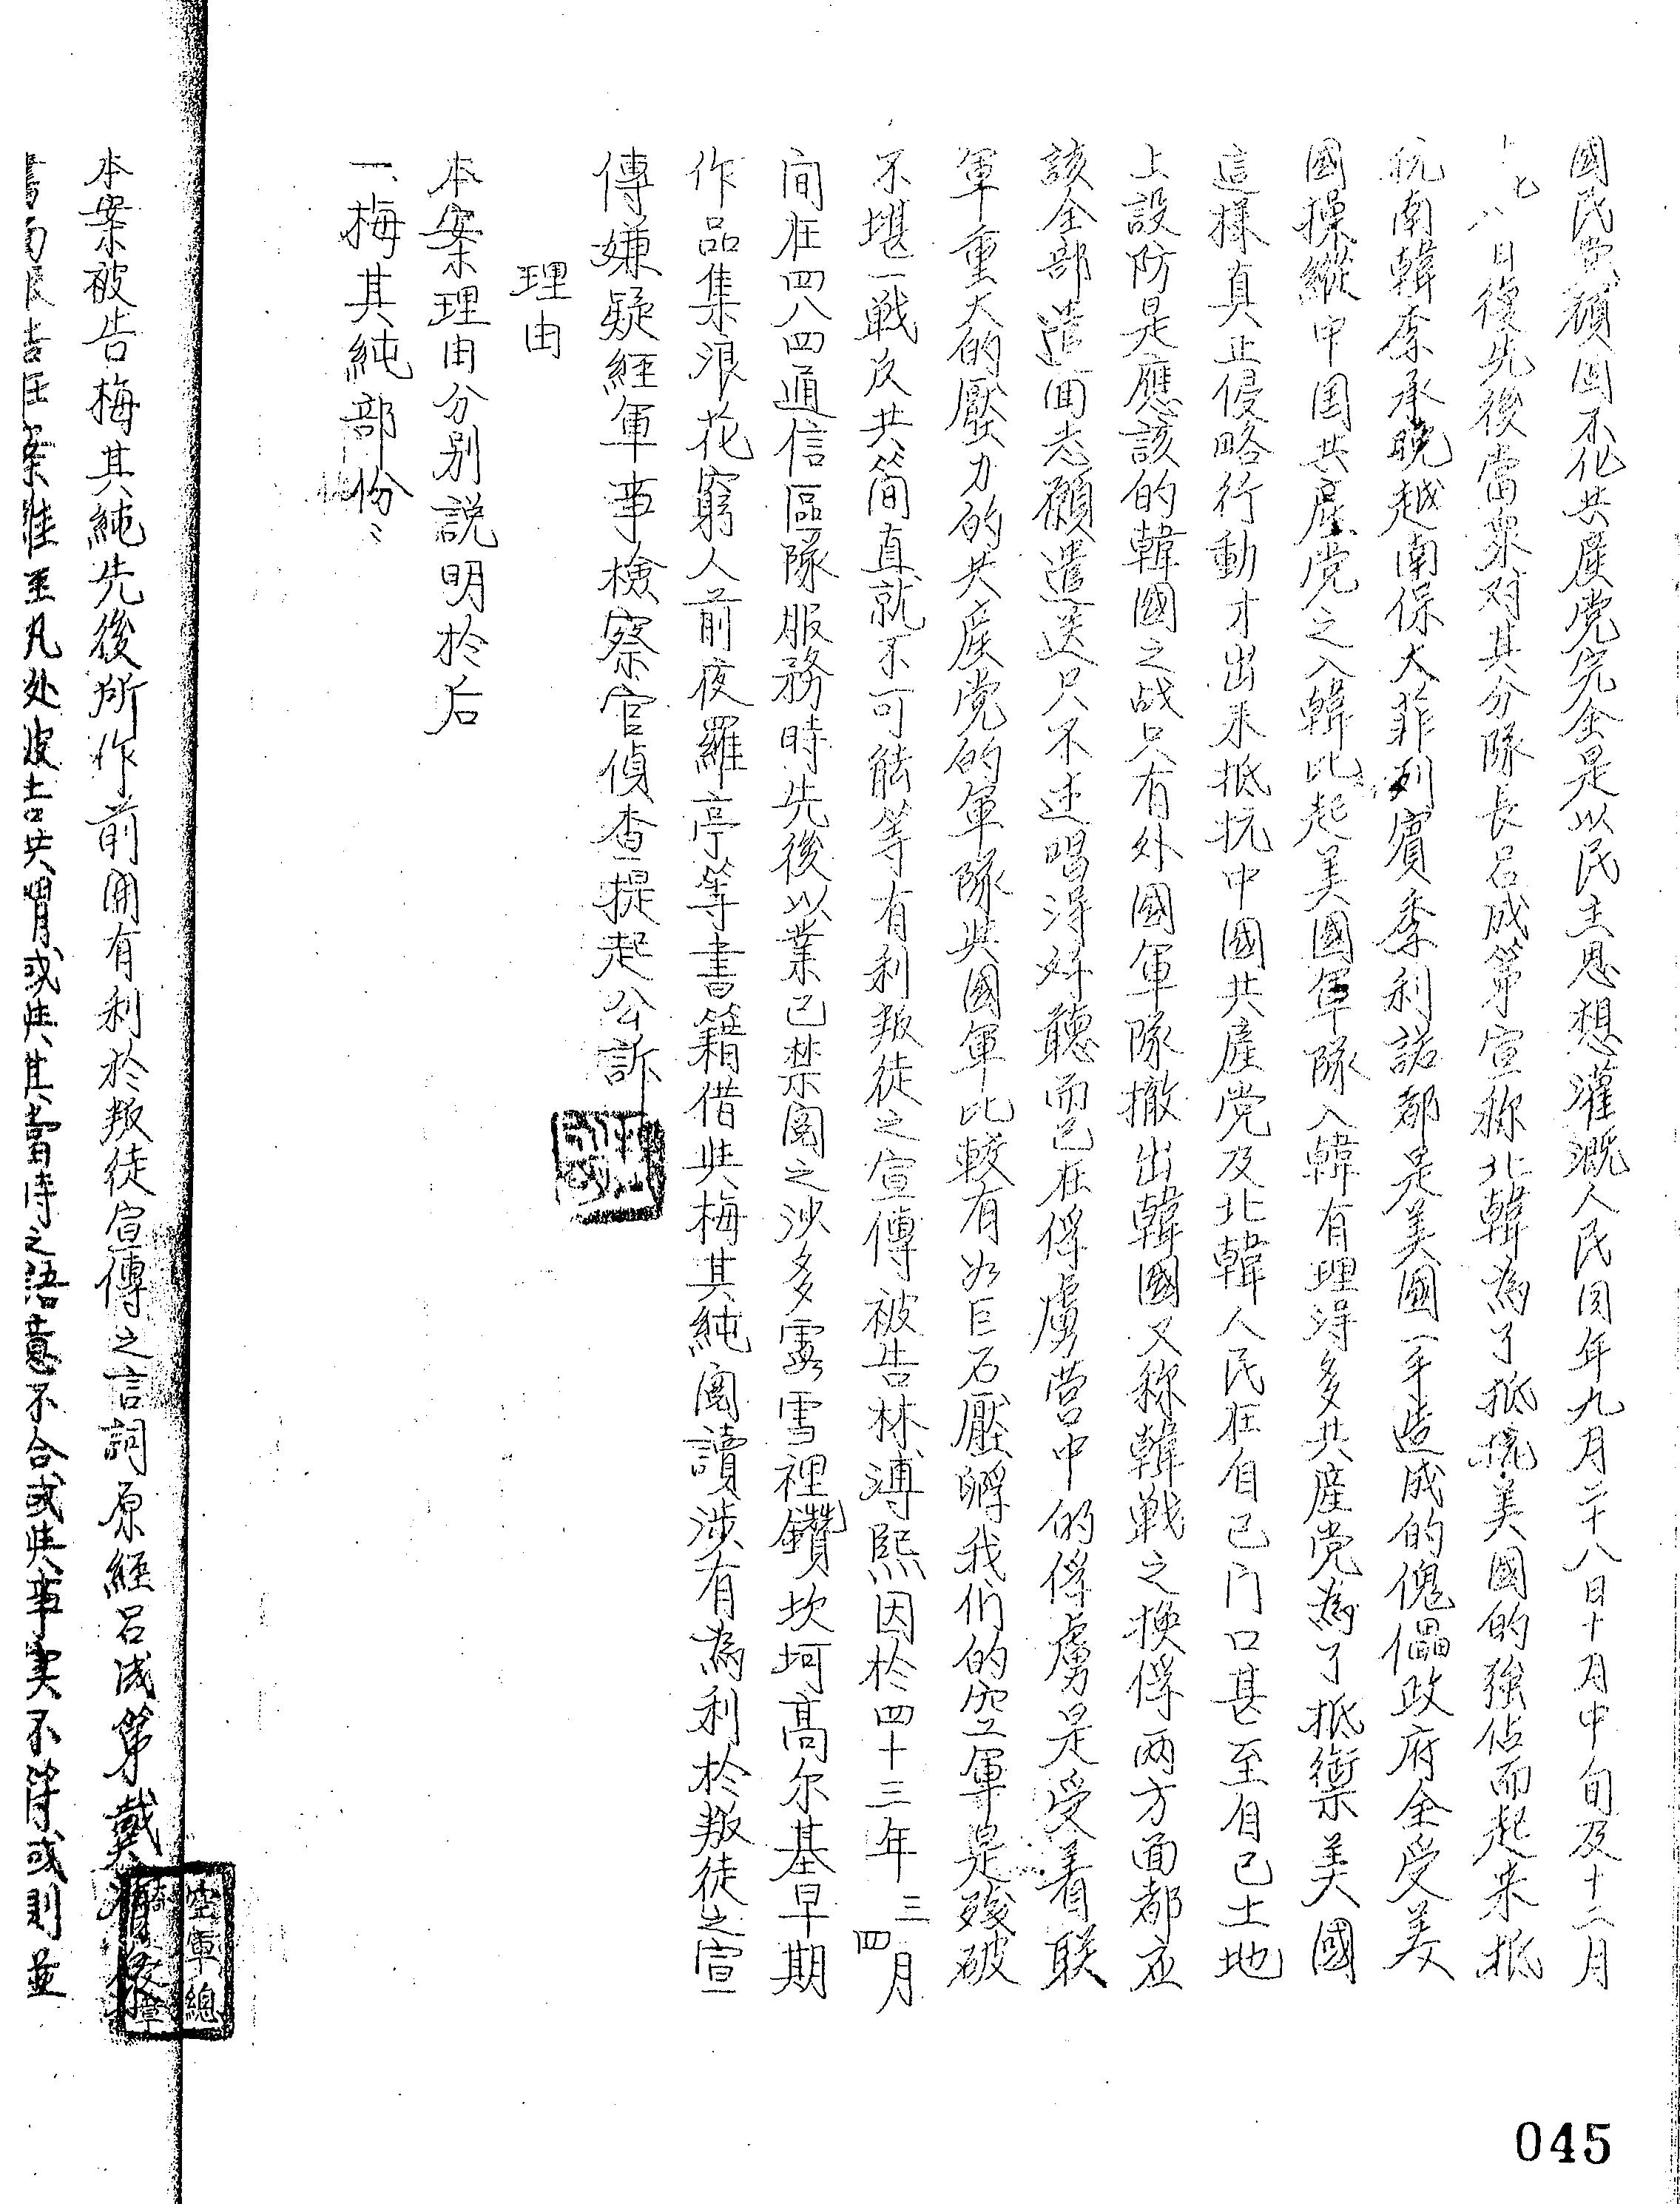 國民党頑固不化共産党完全是以民主思想灌溉人民同年九月二十八日十月中旬及十二月
七八日復先後當衆对其分隊長呂成第宣称北韓為了抵抗美國的強佔而起来抵
抗南韓李承晚越南保大菲列賓季利諾都是美國一手造成的傀儡政府全受美
國操縱中国共産党之入韓比起美國軍隊入韓有理淂多共産党為了抵禦美國
這様真正侵略行動才出來抵抗中國共産党及北韓人民在自己门口甚至自己土地
上設防是應該的韓國之战只有外國軍隊撤出韓國又称韓戦之换俘两方面都应
該全部遣囬志願遣送只不过唱淂好聽而已在俘虜営中的俘虜是受着联
軍重大的壓力的共産党的軍隊與國軍比較有如巨石壓卵我们的空軍是殘破
不堪一戦反共簡直就不可能等有利叛徒之宣傳被告林溥熙因於四十三年三四月
间在四八四通信區隊服務時先後以業已禁閲之沙多霧雪裡鑽坎坷高尔基早期
作品集浪花窮人前夜羅亭等書籍借與梅其純閲讀涉有為利於叛徒之宣
傳嫌疑經軍事檢察官偵查提起公訴
理由
本案理由分别説明於后
一、梅其純部份：
本案被告梅其純先後所作前開有利於叛徒宣傳之言詞原經呂成第戴
在案雖至凡处被告共謂或與其當時之語意不合或與事実不符或則並
空軍總
045